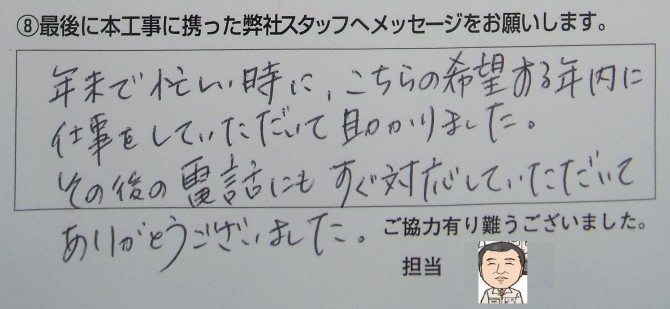 ⑧最後に本工事に携った弊社スタッフへメッセージをお願いします。
年末で忙しい時に、こちらの希望する年内に
仕事をしていただいて助かりました。
その後の電話にもすぐ対応していただいて
ありがとうございました。
ご協力有り難うございました。
担当